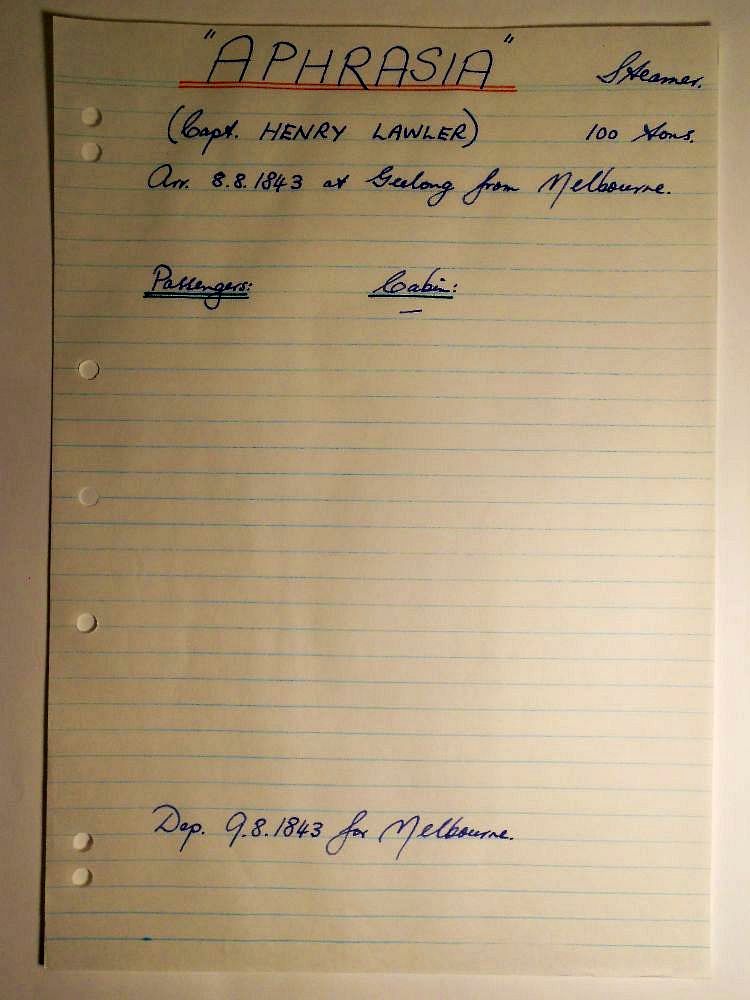 "APHRASIA" Steamer.
(Capt. HENRY LAWLER) 100 tons.
Arr. 8.8.1843 at Geelong from Melbourne.
Passengers: Cabin:
—
Dep. 9.8.1843 for Melbourne.